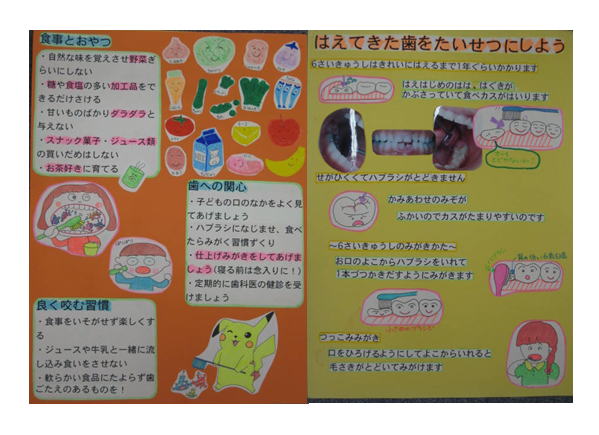 食事とおやつ
・自然な味を覚えさせ野菜ぎ
らいにしない
・糖や食塩の多い加工品をで
きるだけさける
・甘いものばかりダラダラと
与えない
・スナック菓子・ジュース類
の買いだめはしない
・お茶好きに育てる
歯への関心
・子どもの口のなかをよく見
てあげましょう
・ハブラシになじませ、食べ
たらみがく習慣づくり
・仕上げみがきをしてあげま
しょう(寝る前は念入りに!)
・定期的に歯科医の健診を受
けましょう
良く咬む習慣
・食事をいそがせず楽しくす
る
・ジュースや牛乳と一緒に流
し込み食いをさせない
・軟らかい食品にたよらず歯
ごたえのあるものを!
はえてきた歯をたいせつにしよう
6さいきゅうしはきれいにはえるまで1年ぐらいかかります
はえはじめのはは、はぐきが
かぶさっていて食べカスがはいります
せがひくくてハブラシがとどきません
かみあわせのみぞが
ふかいのでカスがたまりやすいのです
～6さいきゅうしのみがきかた～
お口のよこからハブラシをいれて
1本づつかきだすようにみがきます
つっこみみがき
口をひろげるようにしてよこからいれると
毛さきがとどいてみがけます